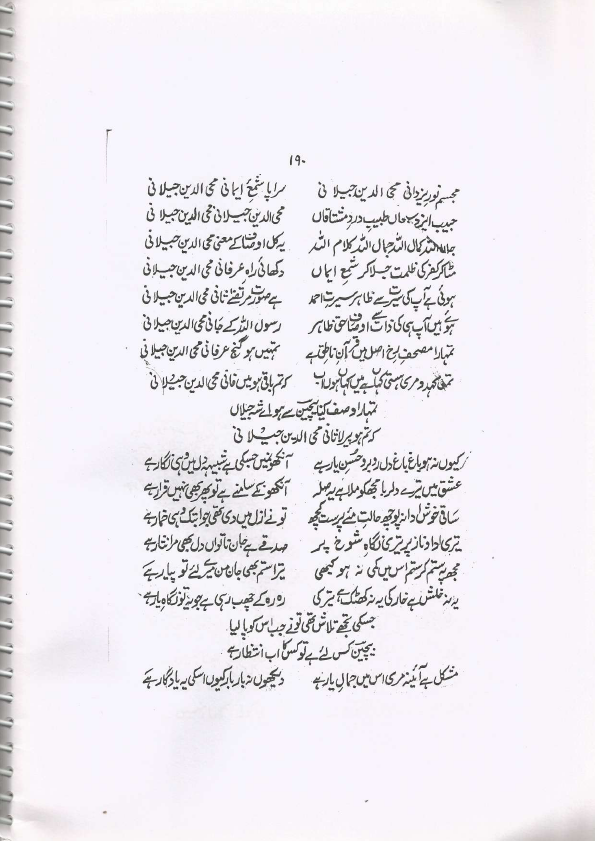 ۱۹۰
مجسم نور یزدانی محی الدین جیلانی سراپا شمع ایمانی محی الدین جیلانی
حبیب ایزد سبحاں طبیب درد مشتاقاں محی الدین جیلانی محی الدین جیلانی
جلال اللہ کمال اللہ جمال اللہ کلام اللہ یہ کل اوصاف کے معنی محی الدین جیلانی
مٹا کر کفر کی ظلمت جلا کر شمع ایماں دکھائی راہ عرفانی محی الدین جیلانی
ہوئی ہے آپ کی سیرت سے ظاہر سیرت احمد ہے صورت مرتضےٰ ثانی محی الدین جیلانی
ہوئے ہیں آپ ہی کی ذات سے اوصاف حق ظاہر رسول اللہ کے جانی محی الدین جیلانی
تمہارا مصحف رخ اصل میں قرآن ناطق ہے تمہیں ہو گنج عرفانی محی الدین جیلانی
تمہی مری ہستی کہاں ہے میں کہاں ہوں اب کہ تم باقی ہو میں فانی محی الدین جیلانی
تمہارا وصف کیا بیچین سے ہو اے شہ جیلاں
کہ تم ہو پیر لاثانی محی الدین جیلانی
کیوں نہ ہو باغ باغ دل روبرو حسن یار ہے آنکھوں میں جسکی ہے شبیہ دل میں وہی نگار ہے
عشق میں تیرے دلربا مجھ کو ملا ہے یہ صلہ آنکھوں کے سامنے ہے تو پھر بھی نہیں قرار ہے
ساقی خوش ادا نہ پوچھ حالت مئے پرست کچھ تو نے ازل میں دی تھی جو ابتک وہی خمار ہے
تیری ادا و ناز پر تیری نگاہ شوخ پر صدقے ہے جان ناتواں دل بھی مرا نثار ہے
مجھ پہ ستم کر ستم اس میں کمی نہ ہو کبھی تیرا ستم بھی جان من میرے لئے تو پیار ہے
یہ نہ خلش ہے خار کی یہ نہ کھٹک ہے تیر کی رہ رہ کے چبھ رہی ہے جو یہ تو نگاہ یار ہے
جسکی تجھے تلاش تھی تو نے جب اس کو پا لیا
بیچین کس لئے ہے تو کس کا اب انتظار ہے
مشکل ہے آئینہ مری اس میں جمال یار ہے دیکھوں نہ بار بار کیوں اسکی یہ یادگار ہے